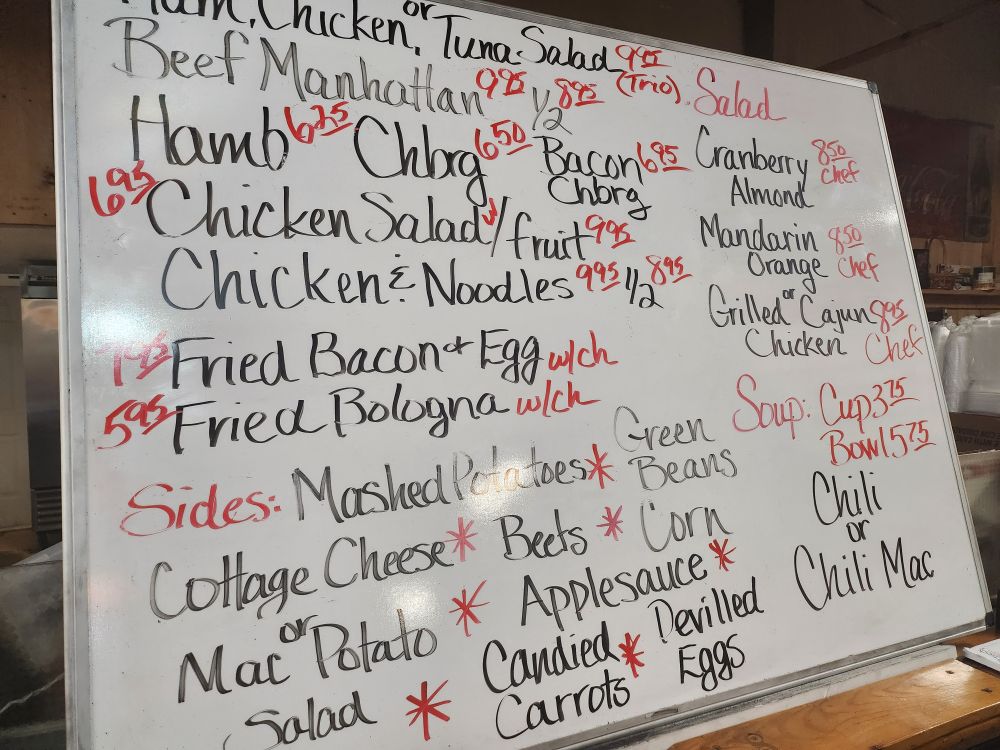 Ham, Chicken, or Tuna Salad 9.95
Beef Manhattan 9.95 1/2 8.95 (Trio)
Hamb 6.25 Chbrg 6.50 Bacon 6.95
Chbrg
6.95 Chicken Salad / fruit 9.95
Chicken & Noodles 9.95 1/2 8.95
Fried Bacon + Egg w/ch
5.95 Fried Bologna w/ch
Sides: Mashed Potatoes * Green
Beans
Cottage Cheese * Beets * Corn
Mac or Potato * Applesauce *
Salad * Candied * Devilled
Carrots Eggs
Salad
Cranberry 8.50
Almond Chef
Mandarin 8.50
Orange Chef
Grilled or Cajun 8.95
Chicken Chef
Soup: Cup 3.75
Bowl 5.75
Chili
or
Chili Mac